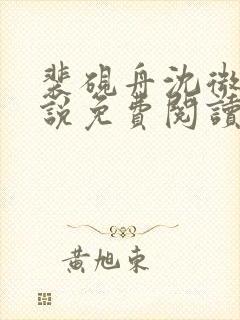 裴硯舟沈微
說免費閱讀
黃旭東